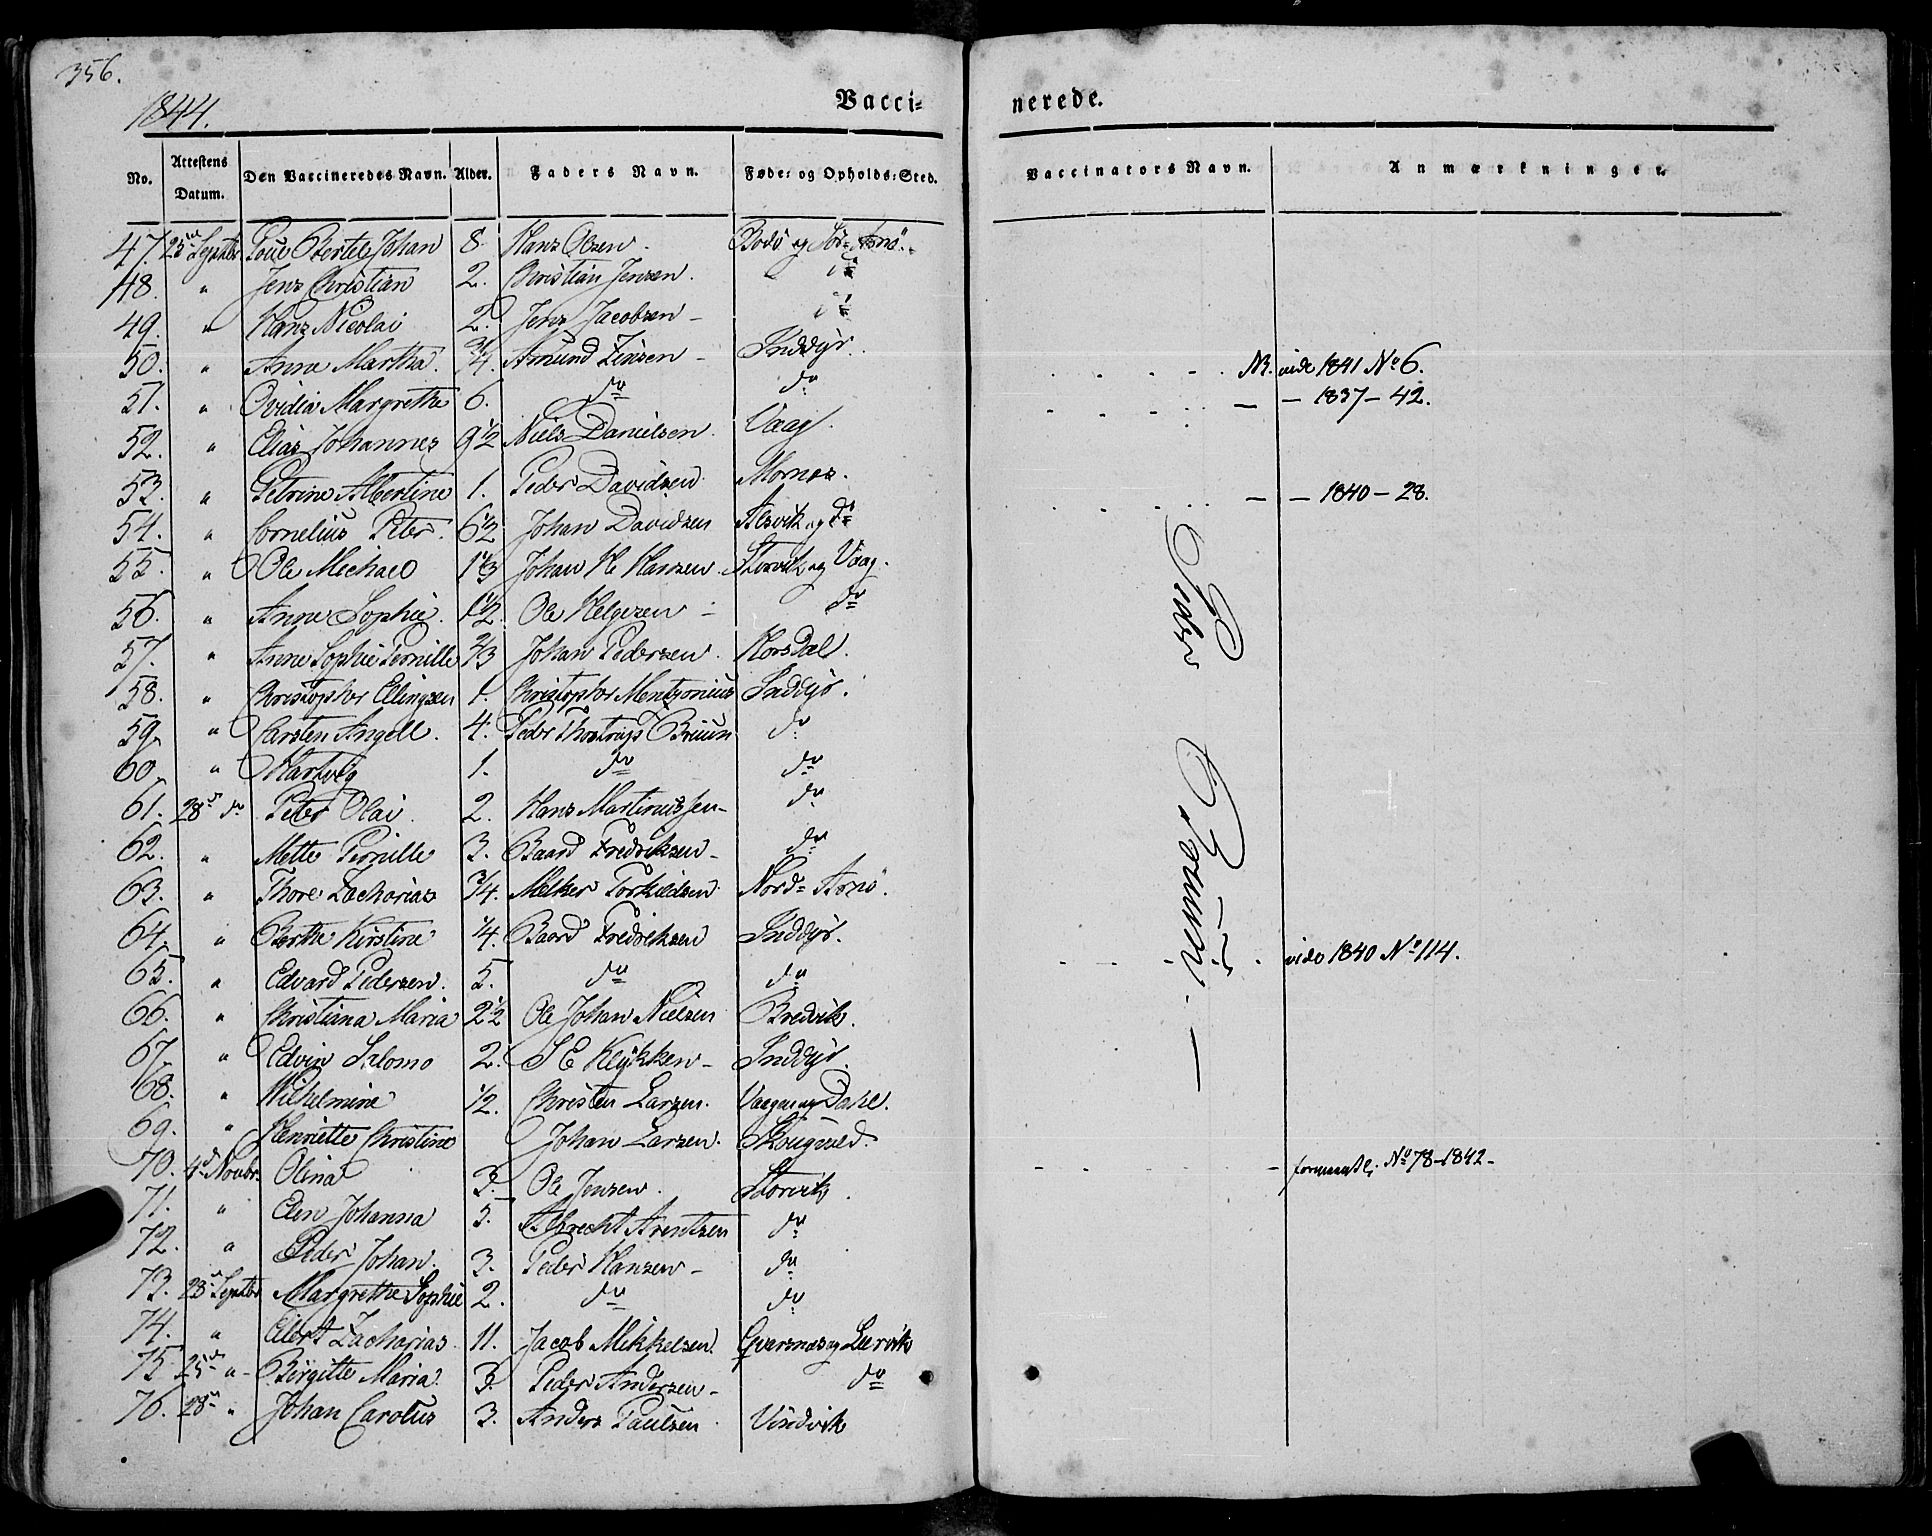 356.
1844.
Vacci-
nerede.
No. Attestens Datum. Den Vaccineredes Navn. Alder. Faders Navn. Føde- og Opholds-Sted. Vaccinators Navn. Anmærkninger.
47. 25de Septbr Poul Bertel Johan 8. Hans Olsen. Bodö og Sör-Arnö.
48. " Jens Christian 2. Christian Jensen. do
49. " Hans Nicolai 2. Jens Jacobsen - do
50. " Anne Martha. 3/4. Amund Zinsen - Inddÿr. NB. vide 1841 No 6.
51. " Ovidia Margrethe 6. do do - - 1837 - 42.
52. " Elias Johannes 9 1/2 Niels Danielsen. Vaag.
53. " Petrine Albertine 1. Peder Davidsen. Mornes. - - 1840 - 28.
54. " Cornelius Peter. 6 1/2 Johan Davidsen Alsvik og do
55. " Ole Michael 1 1/3 Johan H Hansen. Storvik og Vaag.
56. " Anne Sophie. 1 1/2. Ole Helgesen - do
57. " Anne Sophie Pernille 2/3 Johan Pedersen. Horsdal.
58. " Christopher Ellingsen 1. Christopher Mentzonius Inddÿr.
59. " Carsten Angell. 4. Peder Thostrup Bruun do
60. " Hartvig 1. do do
61. 28de do Peter Olai. 2. Hans Martinussen - do
62. " Mette Pernille 3. Baard Fredriksen - do
63. " Thore Zacharias 3/4. Melker Torkildsen Nord-Arnö.
64. " Berthe Kirstine 1/4. Baard Fredriksen Inddÿr.
65. " Edvard Pedersen. 5. do do vide 1840 No 114.
66. " Christiana Maria 2 1/2 Ole Johan Nielsen Bredvik.
67. " Edvin Salomo 2. S E Klÿkken - Inddÿr.
68. " Wilhelmine 1/2. Christen Larsen. Vaagan og Dahl.
69. " Henriette Christine Johan Larsen. Skougvold.
70. 4de Novbr. Olina 3. Ole Jensen. Storvik. formentl: No 78 - 1842 -
71. " Elen Johanna 5. Albrecht Arentsen do
72. " Peder Johan. 3. Peder Hansen - do
73. 28de Septbr Margrethe Sophie 2. do do
74. " Eilert Zacharias. 11. Jacob Mikkelsen. Qvarsnes og Leervik
75. 25de " - Birgitte Maria. 3. Peder Andersen - do
76. 28de " Johan Carolus 3. Anders Paulsen. Vindvik